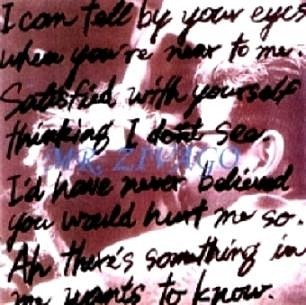 I can tell by your eyes
when you're near to me.
Satisfied with yourself
thinking I don't see
MR. ZIVAGO
I'd have never believed
you would hurt me so.
Ah there's something in
me wants to know.